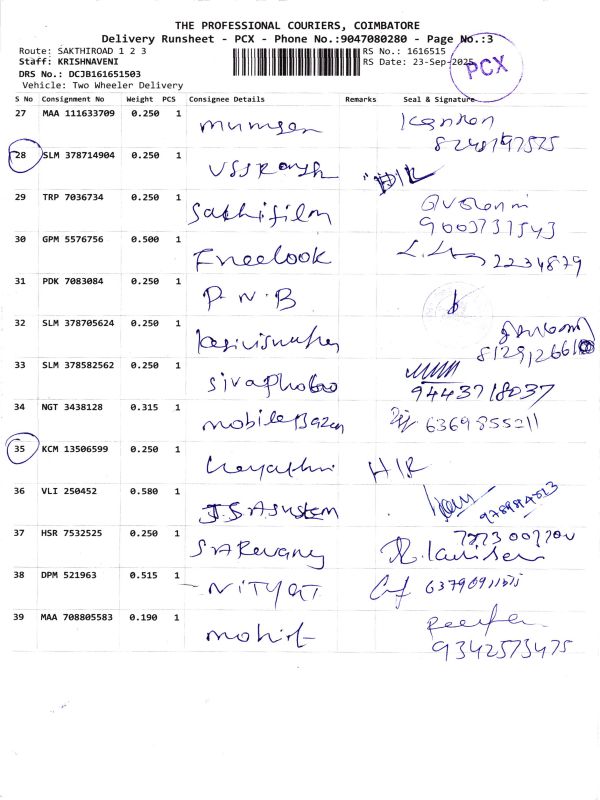 THE PROFESSIONAL COURIERS, COIMBATORE
Delivery Runsheet - PCX - Phone No.:9047080280 - Page No.:3
Route: SAKTHIROAD 1 2 3 RS No.: 1616515
Staff: KRISHNAVENI RS Date: 23-Sep-2025
PCX
DRS No.: DCJB161651503
Vehicle: Two Wheeler Delivery
S No Consignment No Weight PCS Consignee Details Remarks Seal & Signature
27 MAA 111633709 0.250 1
28 SLM 378714904 0.250 1
29 TRP 7036734 0.250 1 Sakthifilm
9003737543
30 GPM 5576756 0.500 1 Freelook 2234879
31 PDK 7083084 0.250 1 P.N.B
32 SLM 378705624 0.250 1
33 SLM 378582562 0.250 1 Sivaphotoo
9443718037
34 NGT 3438128 0.315 1 mobileBazar 6369855211
35 KCM 13506599 0.250 1 H/R
36 VLI 250452 0.580 1
37 HSR 7532525 0.250 1
38 DPM 521963 0.515 1
39 MAA 708805583 0.190 1 mohit
9342573475